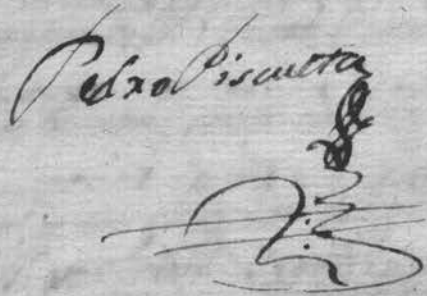 Pedro Piscueta